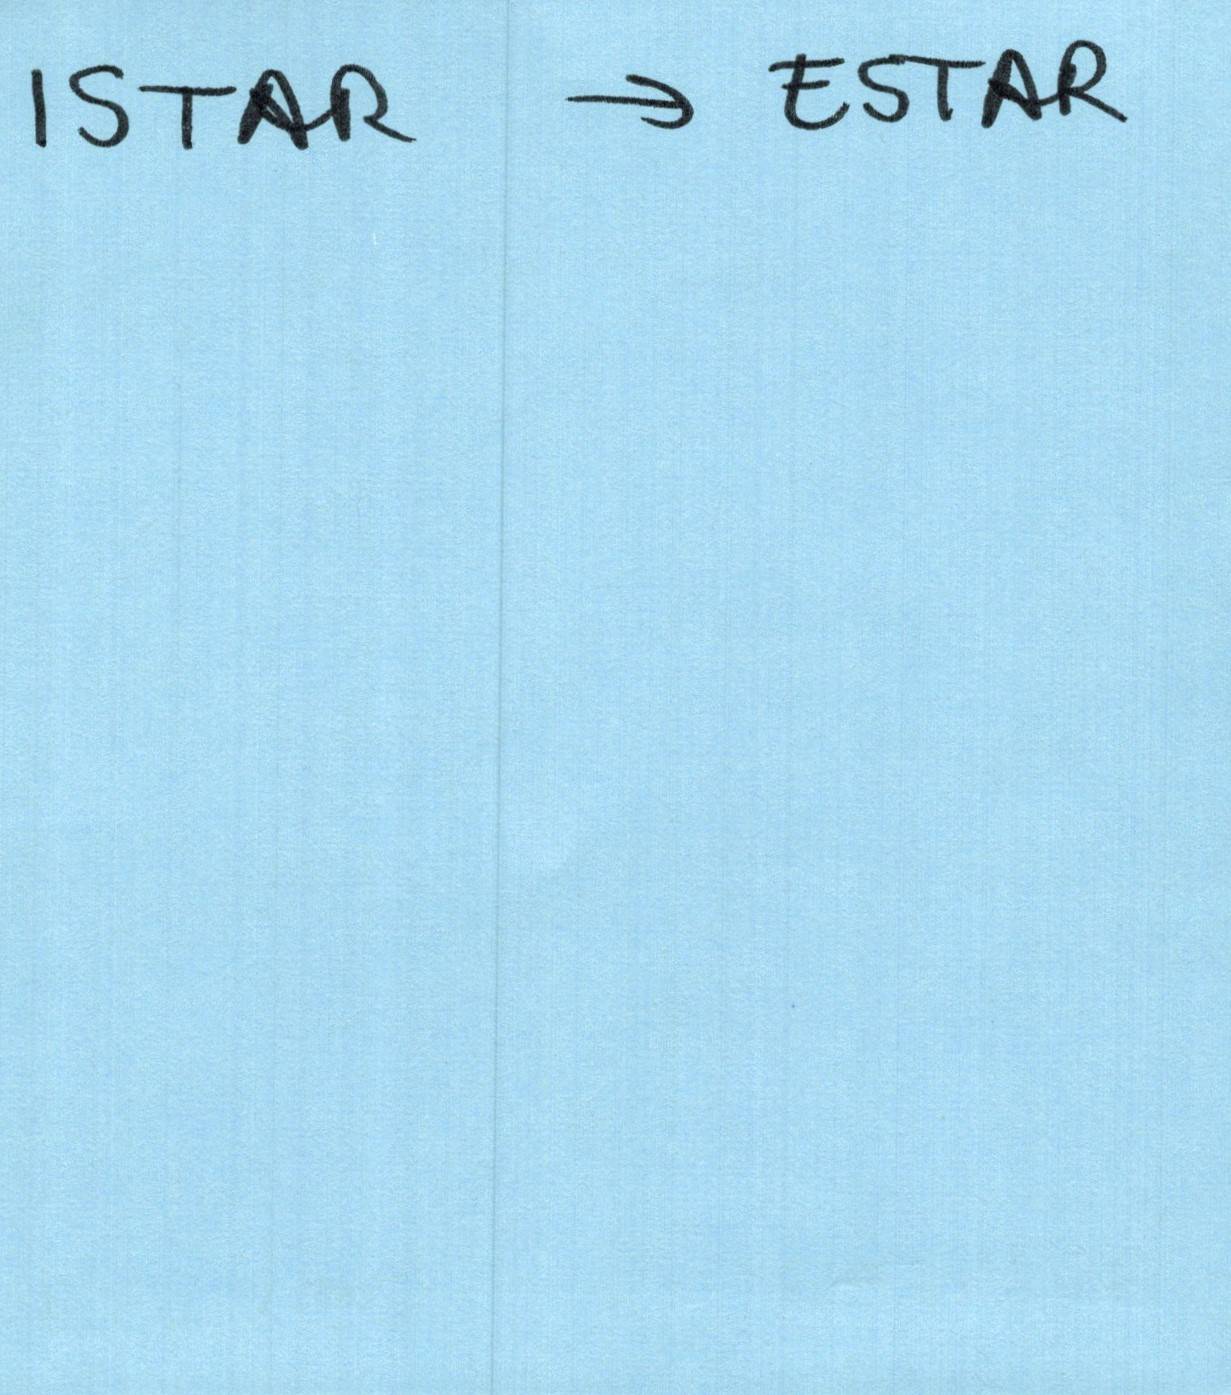 ISTAR → ESTAR